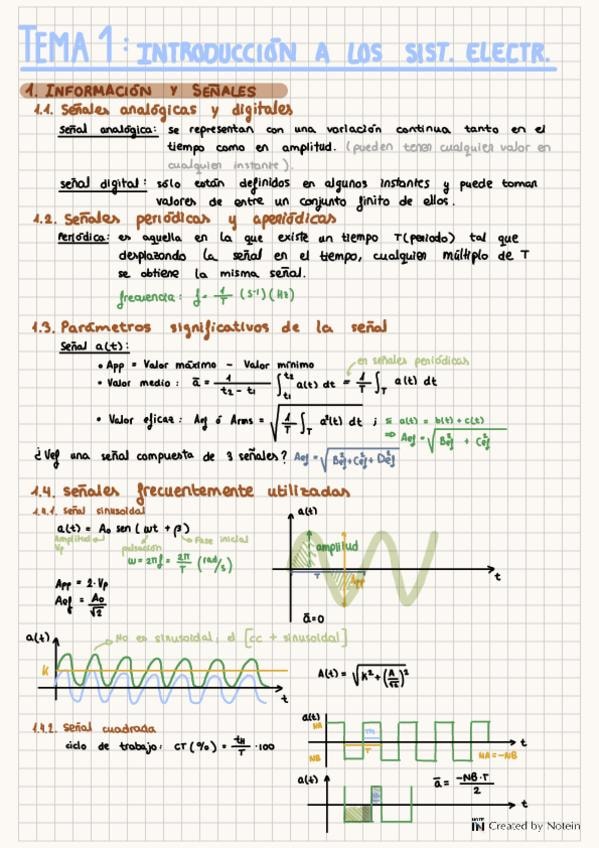 TEMA 1: INTRODUCCIÓN A LOS SIST. ELECTR.
1. INFORMACIÓN Y SEÑALES
1.1. Señales analógicas y digitales
señal analógica: se representan con una variación continua tanto en el
tiempo como en amplitud. (pueden tener cualquier valor en
cualquier instante).
señal digital: sólo están definidos en algunos instantes y puede tomar
valores de entre un conjunto finito de ellos.
1.2. Señales periódicas y aperiódicas
Periódica: es aquella en la que existe un tiempo T(periodo) tal que
desplazando la señal en el tiempo, cualquier múltiplo de T
se obtiene la misma señal.
frecuencia: f = 1/T (s⁻¹) (Hz)
1.3. Parámetros significativos de la señal
Señal a(t):
• App = Valor máximo - Valor mínimo
en señales periódicas
• Valor medio: ā = 1/(t2 - t1) ∫t1^t2 a(t) dt = 1/T ∫T a(t) dt
• Valor eficaz: Aef ó Arms = √(1/T ∫T a²(t) dt ; si a(t) = b(t) + c(t)
⇒ Aef = √(Bef² + Cef²)
¿Vef una señal compuesta de 3 señales? Aef = √(Bef² + Cef² + Def²)
1.4. señales frecuentemente utilizadas
1.4.1. señal sinusoidal
a(t) = A₀ sen (ωt + β)
Amplitud
Vp
pulsación
Fase inicial
ω = 2πf = 2π/T (rad/s)
App = 2·Vp
Aef = A₀/√2
a(t)
amplitud
T
App
t
ā=0
a(t)
No es sinusoidal, el [cc + sinusoidal]
K
t
A(t) = √(K² + (A/√2)²)
1.4.2. señal cuadrada
ciclo de trabajo: CT (%) = tH/T · 100
a(t)
NA
NB
T
t
NA = -NB
a(t)
t
ā = -NB·T/2
Created by Notein